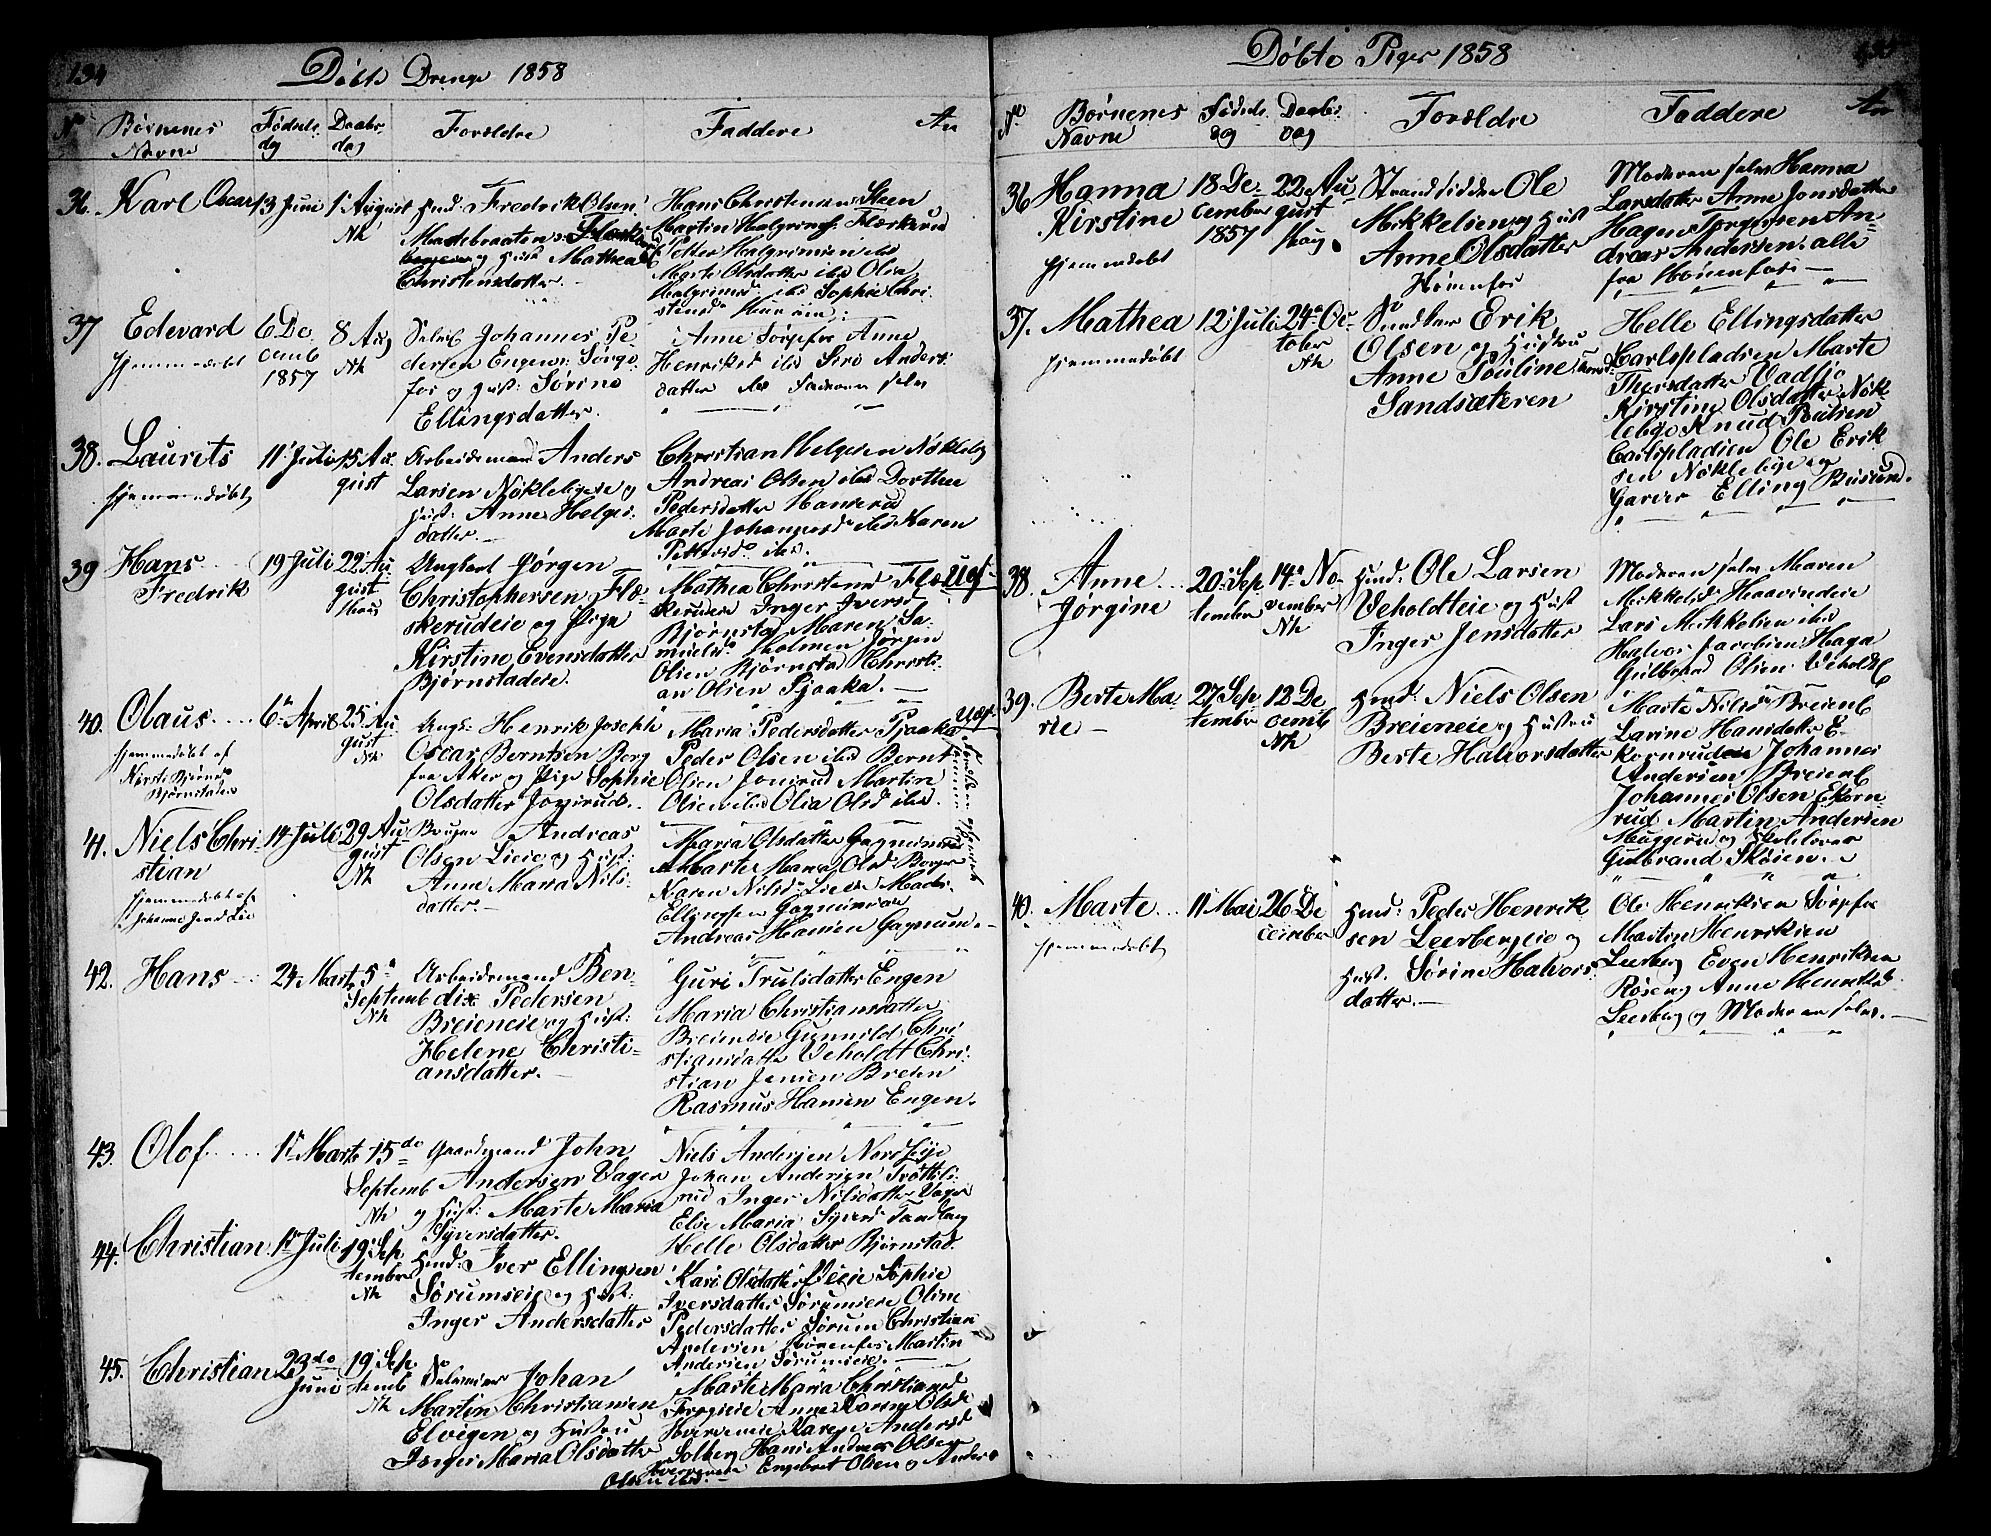 134
Døbte Drenge 1858
No Børnenes Navne
Fødsels dag
Daabs dag
Forældre
Faddere
An
36. Karl Oscar
13 Juni
1 August
Nk
Husd: Fredrik Olsen
og Hust: Mathea
Christensdatter.
Hans Christensen Steen
Martin Halgrims: Flæskerud
Petter Halgrimsen ibd
Marte Olsdatter ibd Olia
Halgrimsd: ibd Sophie Chri-
stensd
37 Edevard
hjemmedøbt
6 De
cemb
1857
8 Aug
Nk
Johannes Pe-
dersen Engen: Sørg-
fos og Hust: Sørine
Ellingsdatter.
Anne Sørgefos Anne
Henriksd ibd Siro Anders-
datter ibd Faderen selv
38. Laurits
hjemmedøbt
11 Juli
15 Au-
gust
Arbeidsmand Anders
Larsen Nøklebyeie og
Hust: Anne Helges-
datter.
Christian Helgesen Nøkleby
Andreas Olsen ibd Dorthea
Pedersdatter Hanserud
Marte Johannesd ibd Karen
Pettersd: ibd.
39 Hans
Fredrik
19 Juli
22 Au-
gust
Houg
Ungkarl Jørgen
Christophersen Flæ-
skerudeie og Pige
Kirstine Evensdatter
Bjørnstadeie.
Uef
Mathea Christensd Flæ-
skerudeie Inger Iversd
Bjørnstad Maren Sa-
muelsd Holmen Jørgen
Olsen Bjørnsta Christi-
an Olsen Pjaaka.
40. Olaus
hjemmedøbt af
Kirsti Bjørnsd
Bjørnstadeie
6 April
25 Au
gust
Nk
Ungk: Henrik Joseph
Oscar Berntsen Berg
fra Aker og Pige Sophie
Olsdatter Jonsrud.
Uegt
Maria Pedersdatter Pjaaka
Peder Olsen ibd Bernt
Olsen Jonsrud Martin
Olsen ibd Olia Olsd ibd.
41. Niels Chri-
stian
hjemmedøbt af
Johanne Jensd Lie
14 Juli
29 Au
gust
Nk
Bruger Andreas
Olsen Lieie og Hust:
Anne Maria Nils-
datter.
Maria Olsdatter Gagnum
Marte Maria Olsd Borger
Karen Nilsd Lieie Mads
Ellingsen Gagnumeie
Andreas Hansen Gagnum.
42. Hans
24 Marts
5
Septemb
Nk
Arbeidsmand Ben-
dix Pedersen
Breieneie og Hust:
Helene Christi-
ansdatter.
Guri Trulsdatter Engen
Maria Christiansdatter
Breieneie Gunnild Chri-
stiansdatter Veholdt Chri-
stian Jensen Breien
Rasmus Hansen Engen.
43. Olof
1 Marts
15de
Septemb
Nk
Gaardmand John
Andersen Vager
og Hust: Marte Maria
Syversdatter.
Niels Andersen Nordbye
Johan Andersen Trøttels-
rud Inger Nilsdatter Vager
Else Maria Syversd Tandberg
Helle Olsdatter Bjørnstad.
44. Christian
1 Juli
19 Sep
tember
Nk
Husd: Iver Ellingsen
Sørumseie og Hust:
Inger Andersdatter
Kari Olsdatter Veeie Sophie
Iversdatter Sørumseie Oline
Pedersdatter Sørum Christian
Andersen Hønenfos Martin
Andersen Sørumseie.
45. Christian
23de
Juni
19 Sep
temb
Nk
Johan
Martin Christiansen
Elvigen og Hustru
Inger Maria Olsdatter
Marte Maria Christiansd
Anne Karine Olsd
Hverveneie Karen Andersd
Solberg Hans Andreas Olsen
Hverveneie Engebret Olsen og Anders
Olsen ibd.
Døbte Piger 1858
135
No Børnenes Navne
Fødselsdag
Daabsdag
Forældre
Faddere
An
36 Hanna
Kirstine
hjemmedøbt
18 De-
cember
1857
22 Au-
gust
Haug
Strandsidder Ole
Mikkelsen og Hust
Anne Olsdatter
Hønenfos
Moderen selv Hanna
Larsdatter Anne Jonsdatter
Hagen Torgersen An-
dreas Andersen. alle
fra Hønenfos
37. Mathea
hjemmedøbt
12 Juli
24 Oc-
tober
Nk
Snedker Erik
Olsen og Hustru
Anne Pouline
Sandsæteren
Helle Ellingsdatter
Carlspladsen Marte
Thorsdatter Vadsjø
Kirstine Olsdatter Nøk-
lebye Knud Poulsen
Carlspladsen Ole Erik-
sen Nøklebye og
Garver Elling Busund.
38. Anne
Jørgine
20 Sep
tember
14 No-
vember
Nk
Husd: Ole Larsen
Veholdteie og Hust
Inger Jensdatter
Moderen selv Maren
Mikkelsd Haavindeie
Lars Mikkelsen ibd
Halvor Jacobsen Haga
Gulbrand Olsen Veholdt
39. Berte Ma-
rie
27 Sep
tember
12 De
cemb
Nk
Husd: Niels Olsen
Breieneie og Hustru
Berte Halvorsdatter
Marte Nilsd Breienb
Larine Hansdatter E-
kornrud Johannes
Andersen Breienb
Johannes Olsen Ekorn-
rud Martin Andersen
Muggerud og Skolelærer
Gulbrand Skøien.
40. Marte
hjemmedøbt
11 Mai
26 De
cember
Husd: Peder Henrik
sen Leerbergeie og
Hust. Sørine Halvors-
datter.
Ole Henriksen Sørgfos
Martin Henriksen
Leerberg Even Henriksen
Røsen Anne Henriksd
Leerberg og Moderen selv.